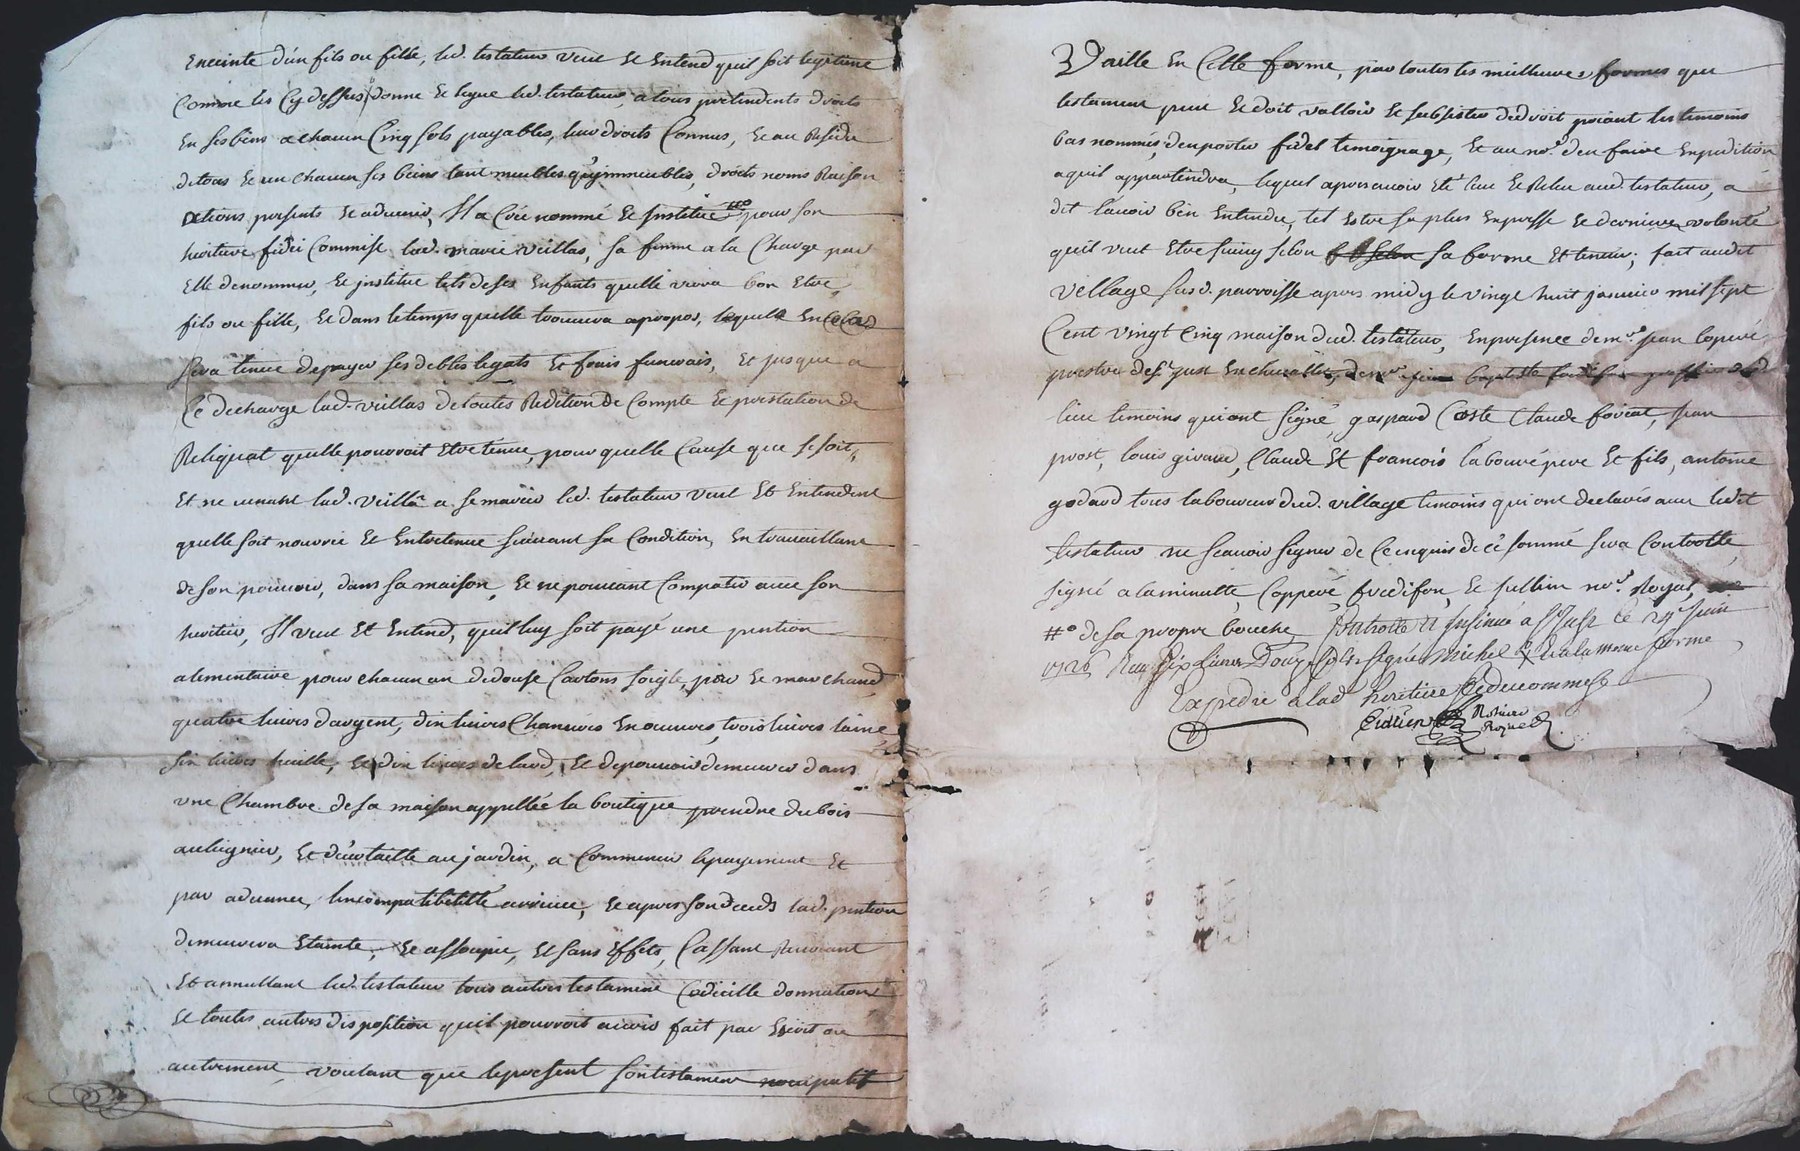 Enceinte d'un fils ou fille, led. testateur veut Et Entend quil soit legitime
Comme les Cy dessus, donne Et legue led. testateur, a tous pretendents droits
En ses biens a chacun Cinq sols payables, leur droits Connus, Et au Residu
de tous Et un chacun ses biens tant meubles qu'jmmeubles, droits noms Raison
actions, presents Et advenir, Jl a Créé nommé Et Jnstitué ##o pour son
heritiere fidei Commise lad. marie veillas, sa femme a la Charge par
Elle denommer, Et jnstituer tels de ses Enfants quelle verra bon Etre,
fils ou fille, Et dans le temps quelle trouvera apropos, laquelle En Ce Cas
sera tenue de payer ses debtes legats Et frais funerais, Et jusque a
Ce decharge lad. veillas de toutes Redition de Compte Et prestation de
Reliquat quelle pourroit Etre tenue, pour quelle Cause que se soit,
Et ne venant lad. veillas a se marier led. testateur veut Et Entendent
quelle soit nourrie Et Entretenue suivant sa Condition, En travaillant
de son pouvoir, dans sa maison, Et ne pouvant Compatir avec son
heritier, Jl veut Et Entend, quil luy soit payé une pention
alimentaire pour chacun an de douse Cartons soigle, pour Le marchand,
quatre livres d'argent, dix livres Chanvres En œuvres, trois livres laine
six livres huille, Et dix livres de lard, Et de pouvoir demeurer dans
une Chambre de sa maison appellée la boutique prendre du bois
au bugnier, Et d'ourtaille au jardin, a Commencer le payement Et
par advance, lincompatibilitté arrivée, Et apres son deceds lad. pention
demeurera Etainte, Et assoupie, Et sans Effets, Cassant Revocant
Et annullant led. testateur tous autres testament Codicille donnations
Et toutes autres disposition quil pourroit avoir fait par Ecrit ou
autrement, voulant que le present son testament nocupatif
Vaille En Cette forme, par toutes les meilleures formes que
testament peut Et doit valloir Et subsister de droit priant les temoins
bas nommés, d'en porter fidel temoignage, Et au nore. d'en faire Expedition
a quil appartiendra, lequel apres avoir Eté lue Et Relu aud. testateur, a
dit l'avoir bien Entendu, tel Estre sa plus Expresse Et derniere volonté
quil veut Etre suivy selon sa forme Et teneur; fait audit
village susd. parroisse apres midy le vingt huit janvier mil sept
Cent vingt Cinq maison dud. testateur, En presence de mre. jean Coperé
prestre de st. just En chevallet, de mre. jean baptiste fredifon dud
lieu temoins qui ont signé, gaspard Coste Claude foriat, jean
prost, louis giraud, Claude Et francois labouré pere Et fils, antoine
godard tous laboureurs dud. village temoins qui ont declarés avec ledit
testateur ne scavoir signer de Ce enquis de Cé sommé sera Controllé
signé a la minutte, Copperé, fredifon, Et nore. Royal
##o de sa propre bouche, Controllé Et Jnsinué a St Just Le 29e Juin
1726 Reçu Dix Livres Douze Sols signé Michel
Expedié a lad heritiere fideicommise
Notaire
Royal